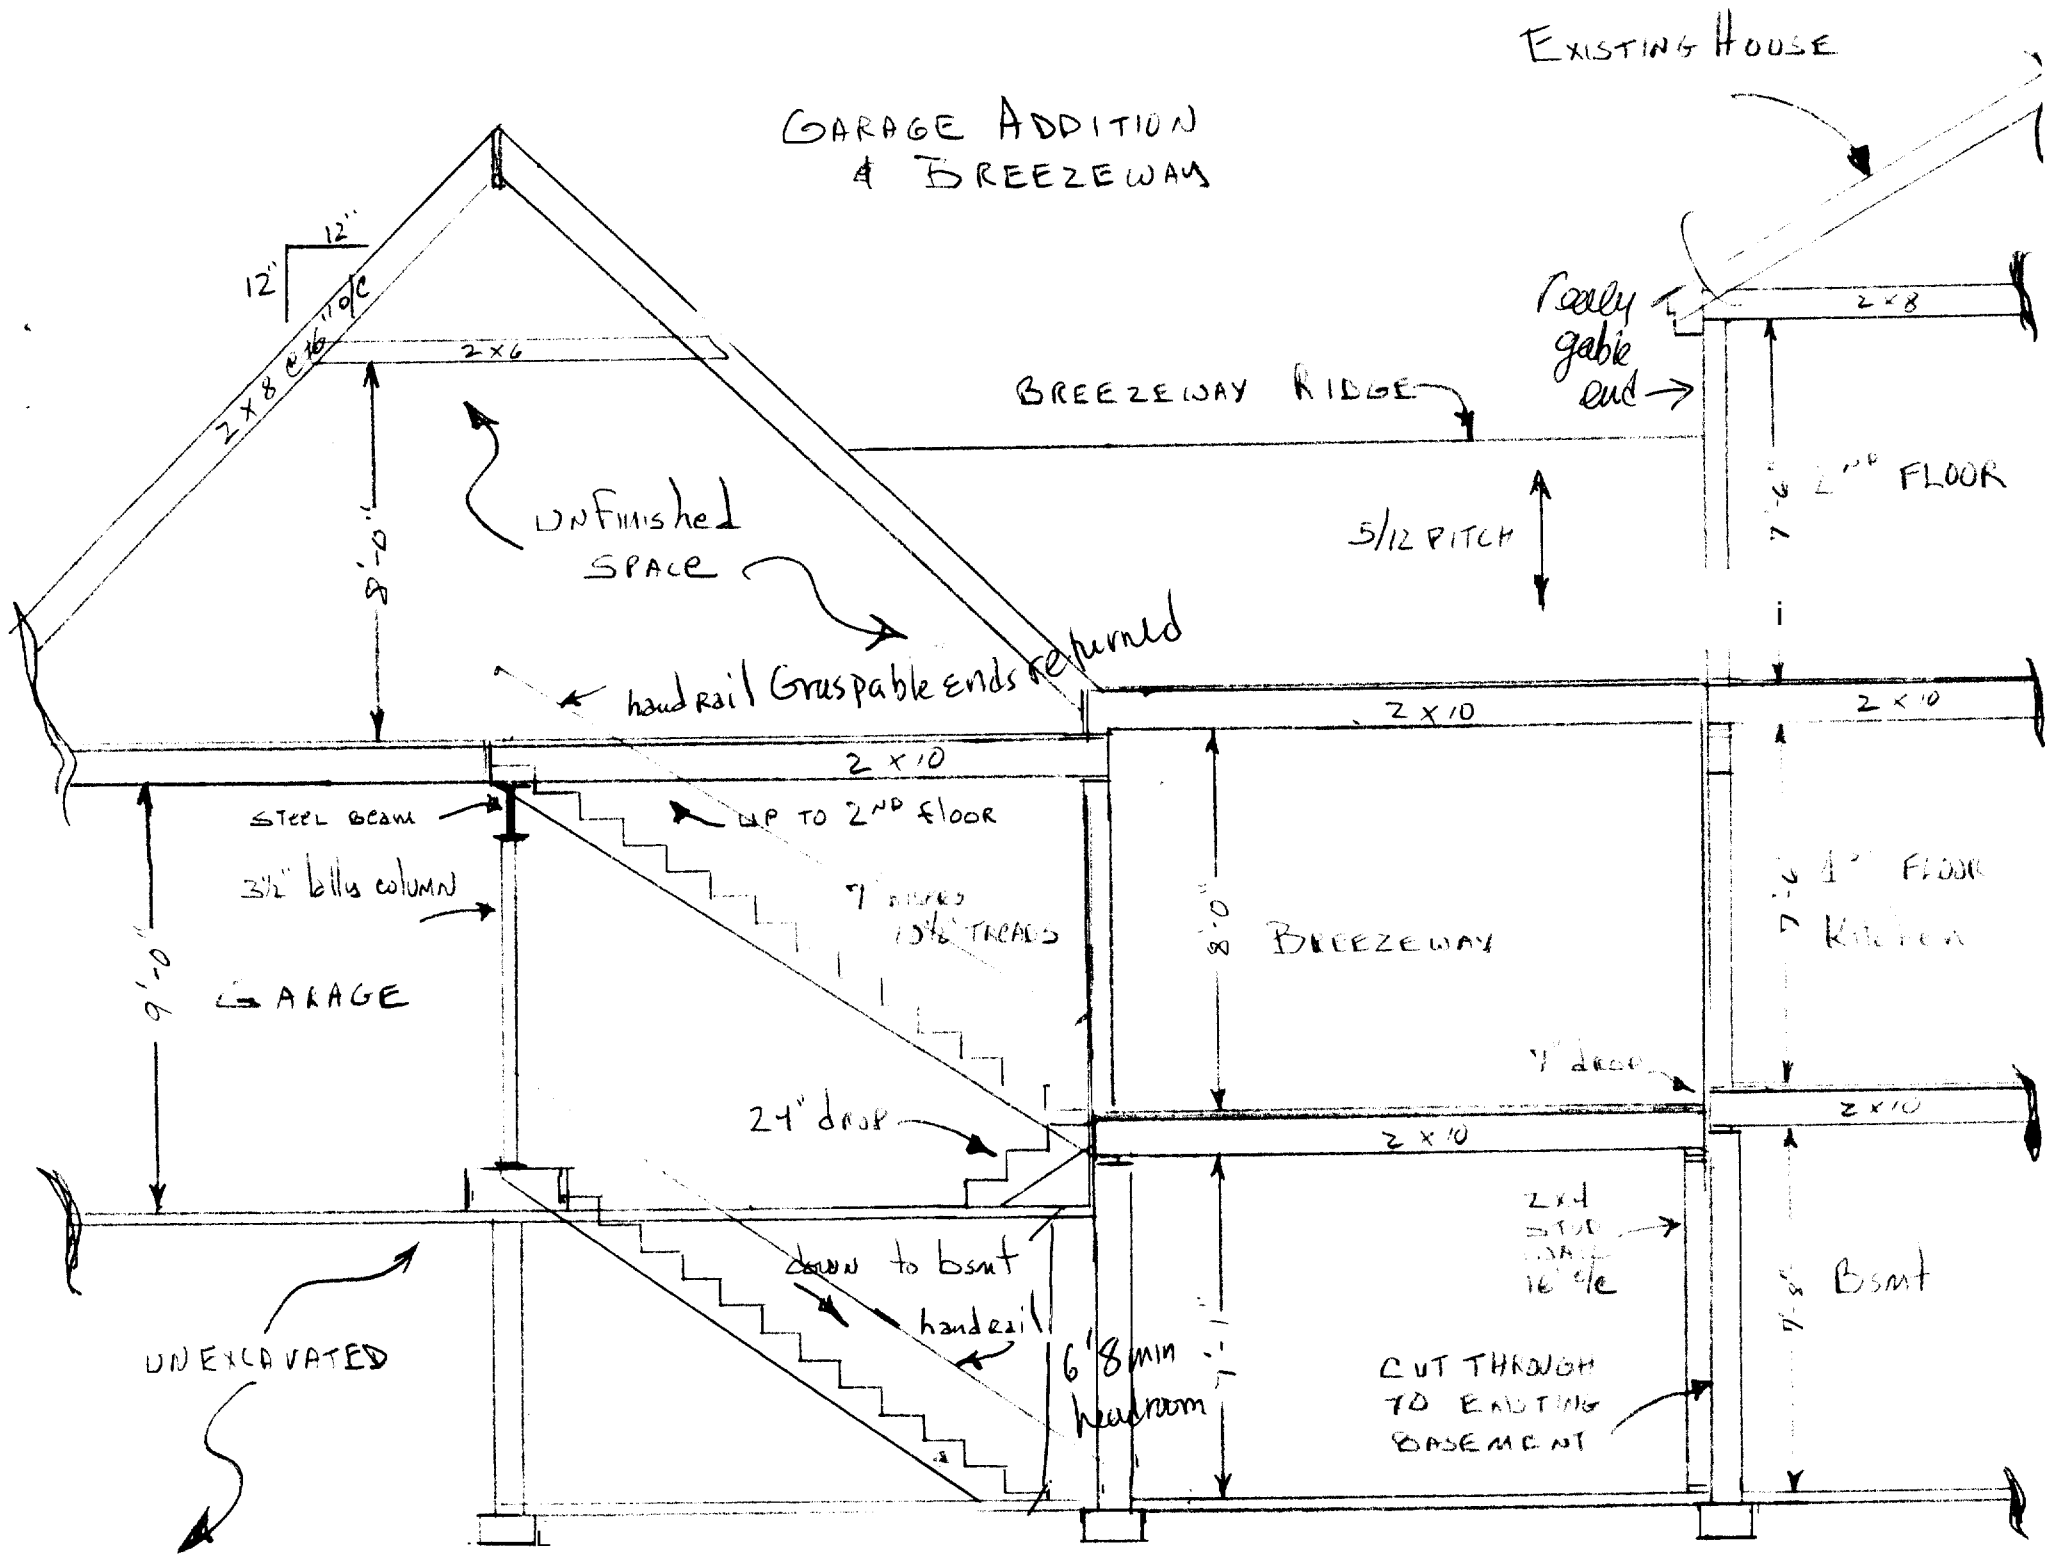 EXISTING HOUSE
GARAGE ADDITION
& BREEZEWAY
12"
12"
2 x 8 @ 16" o/c
2 x 6
8'-0"
UNFinished
SPACE
BREEZEWAY RIDGE
really
gable
end
2 x 8
2ND FLOOR
5/12 PITCH
handrail Graspable ends returned
2 x 10
2 x 10
2 x 10
STEEL BEAM
UP TO 2ND floor
3½" lally column
7" RISERS
TREADS
9'-0"
GARAGE
8'-0"
BREEZEWAY
FLOOR
Kitchen
7" drop
24" drop
2 x 10
2 x 10
2 x 4
STUD
WALL
16" o/c
down to bsmt
handrail
6'8 min
headroom
Bsmt
UNEXCAVATED
CUT THROUGH
TO EXISTING
BASEMENT